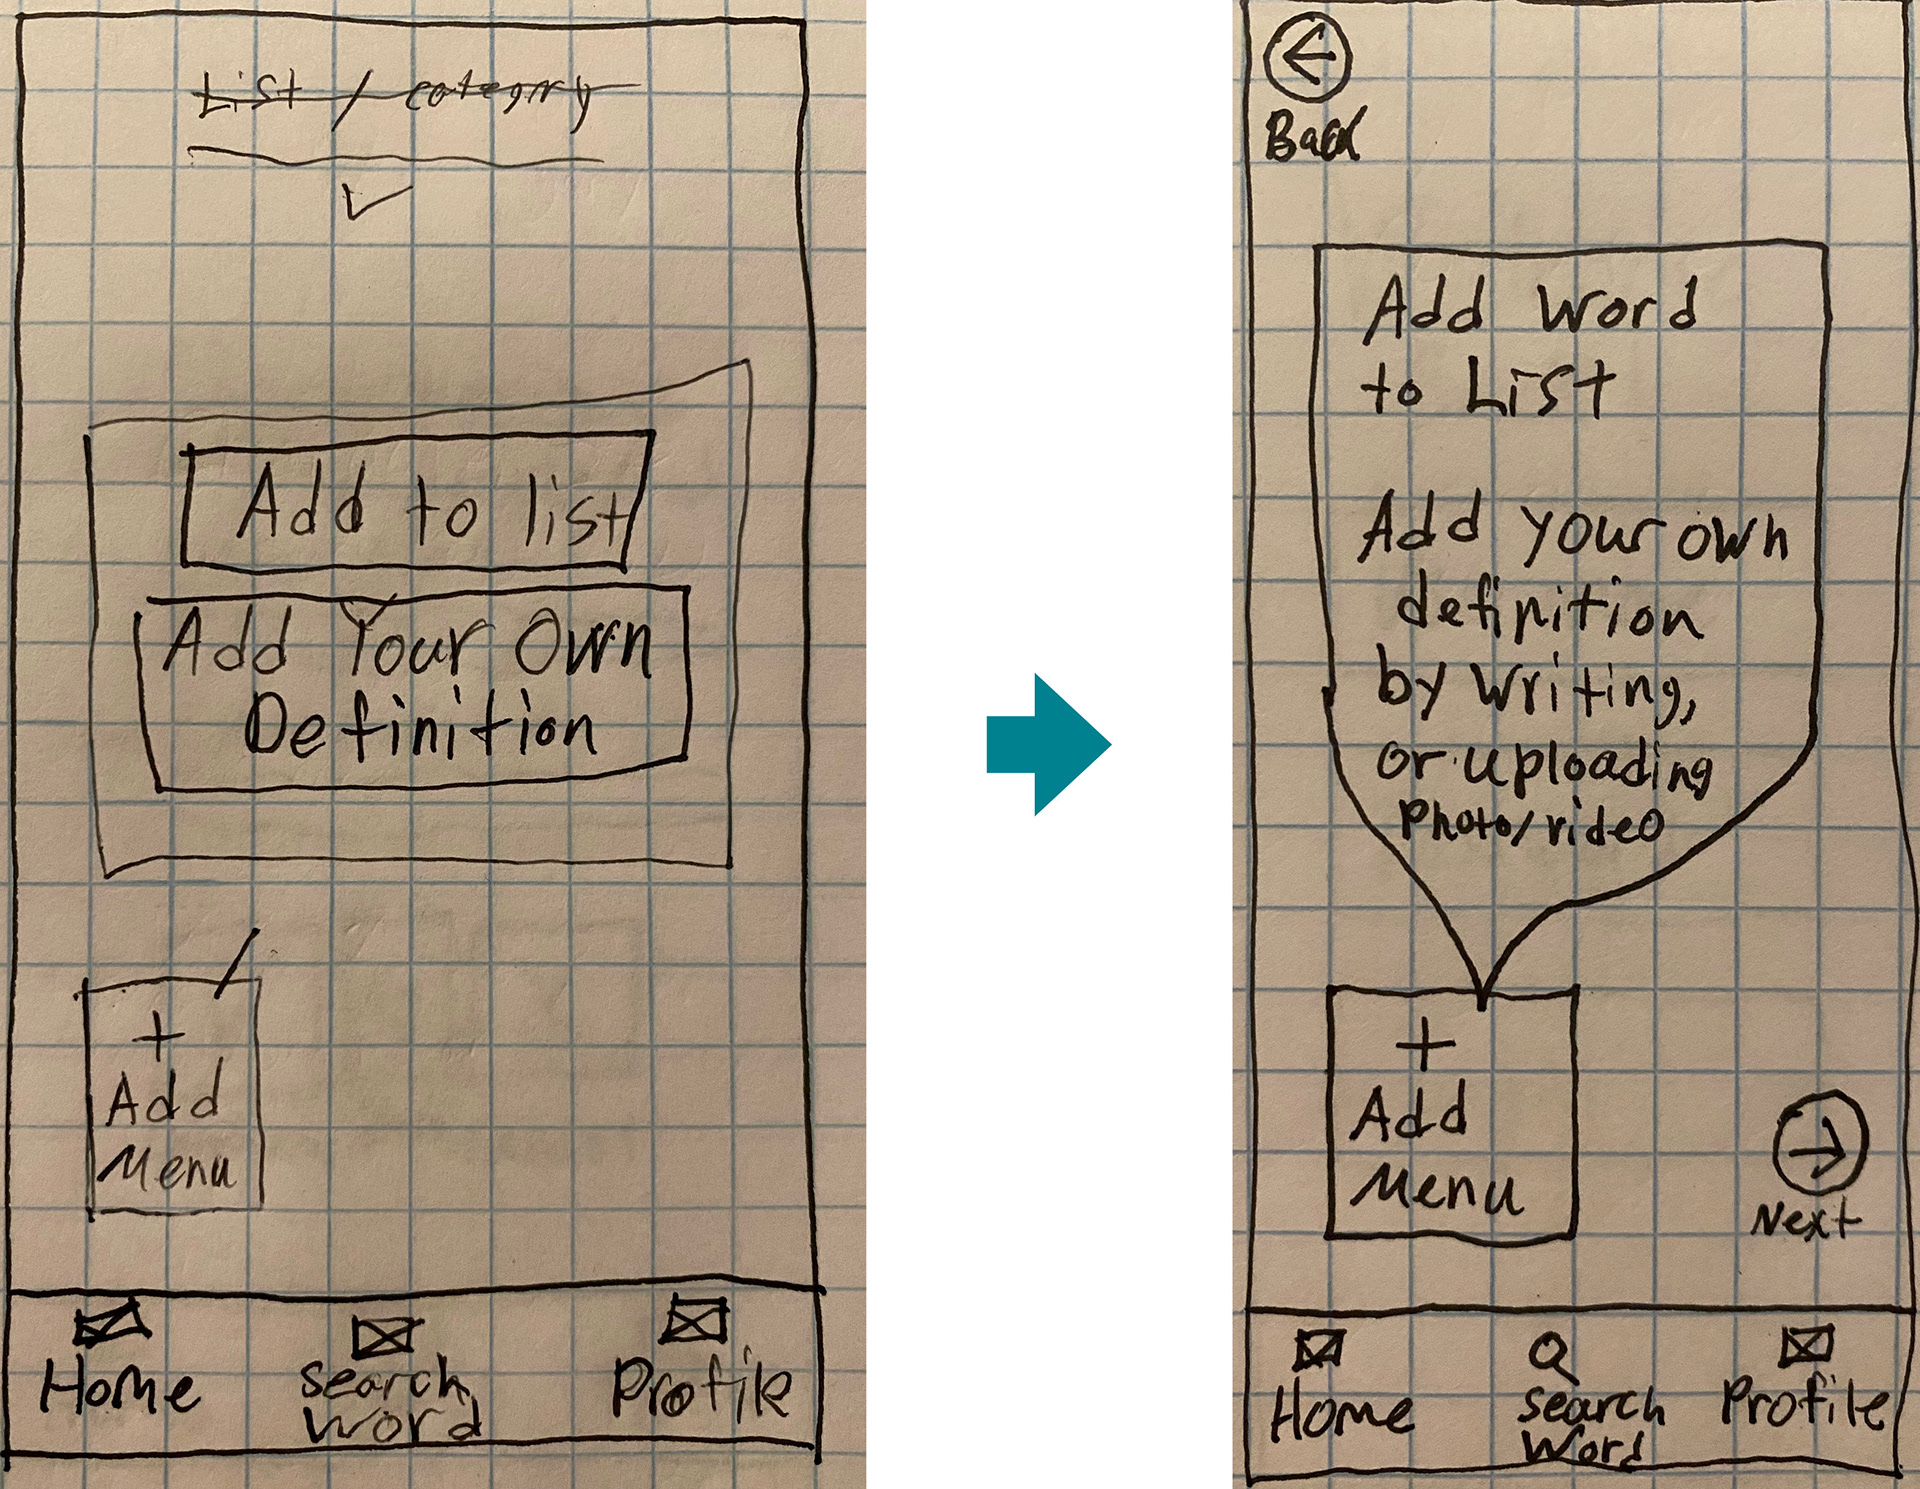 List / category
Add to list
Add Your Own
Definition
+
Add
Menu
Home
Search
Word
Profile
Back
Add Word
to List
Add your own
definition
by writing,
or uploading
Photo/video
+
Add
Menu
Next
Home
Search
Word
Profile